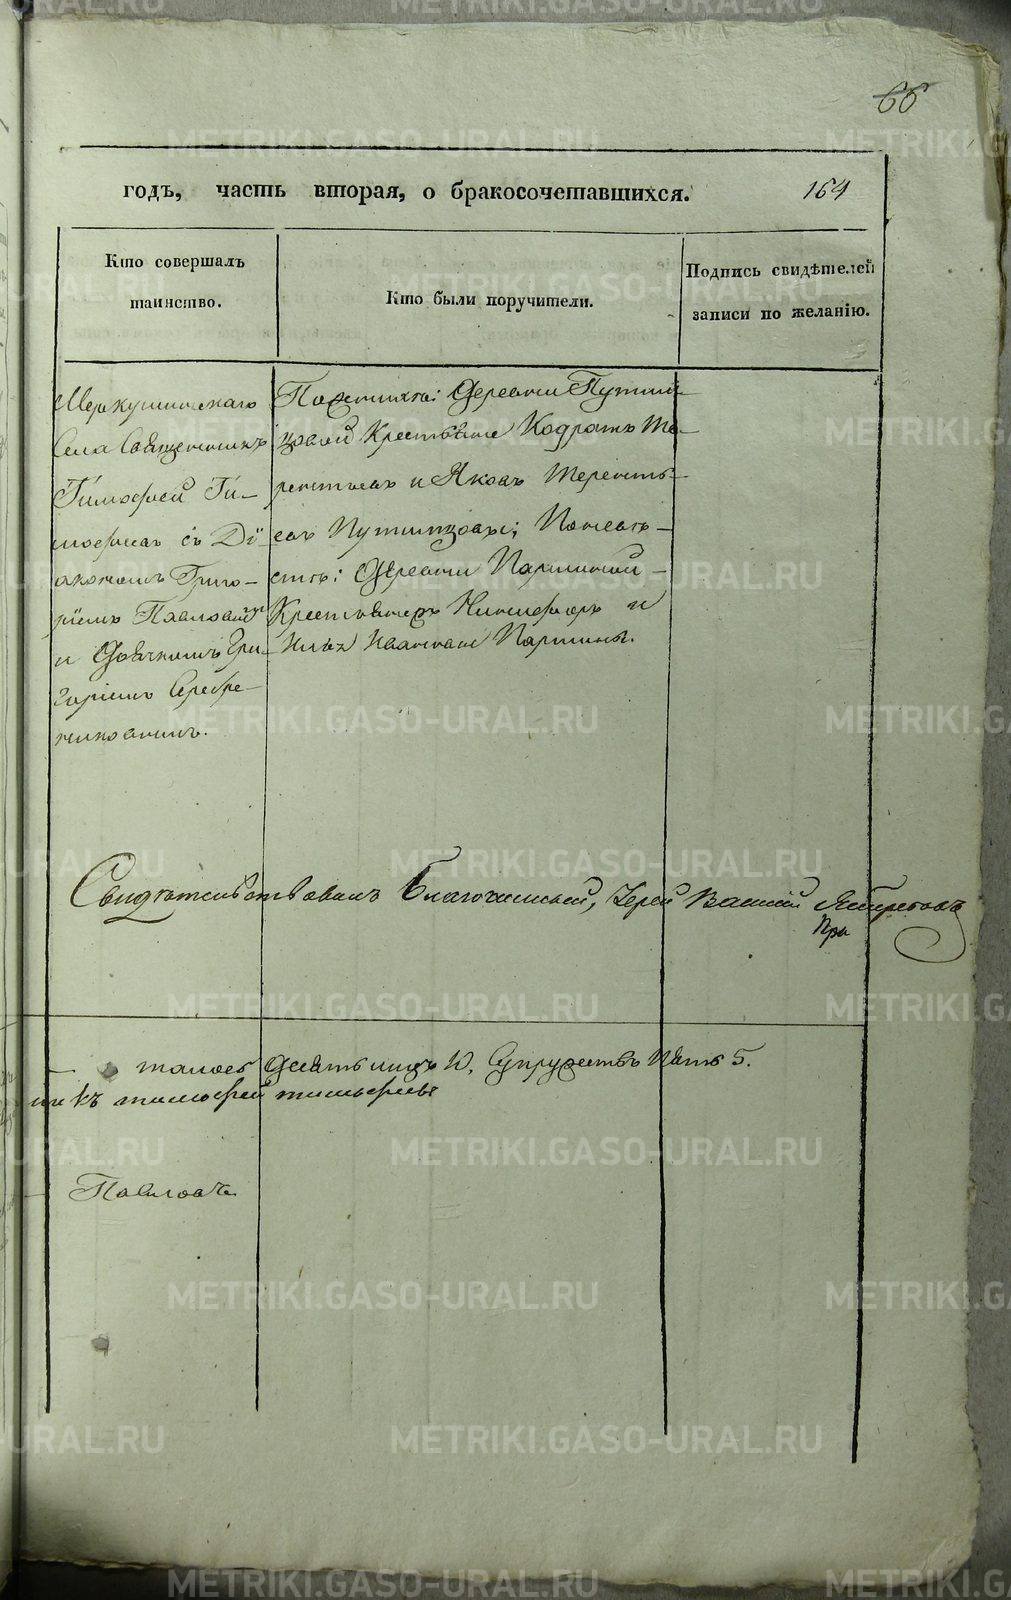 66
годъ, часть вторая, о бракосочетавшихся. 164
Кто совершалъ таинство.
Кто были поручители.
Подпись свидѣтелей записи по желанію.
Меркушинскаго
Села Священникъ
Тимофей Ти-
мофеевъ съ Дї-
акономъ Григо-
рїемъ Павловымъ
и Дьячкомъ Гри-
горїемъ Серебре-
никовымъ.
По женихѣ: Деревни Путими-
цовой Крестьяне Кодратъ Те-
рентьевъ и Яковъ Терентъ-
евъ Путимцовы; По невѣ-
стѣ: Деревни Паршиной
Крестьяне Никифоръ и
Илья Ивановы Паршины.
Свидѣтельствовалъ Благочинный, Іерей Василій
того Десять лицъ 10, Супружествъ Пять 5.
къ тимофей тимофеевъ
Павловъ
METRIKI.GASO-URAL.RU